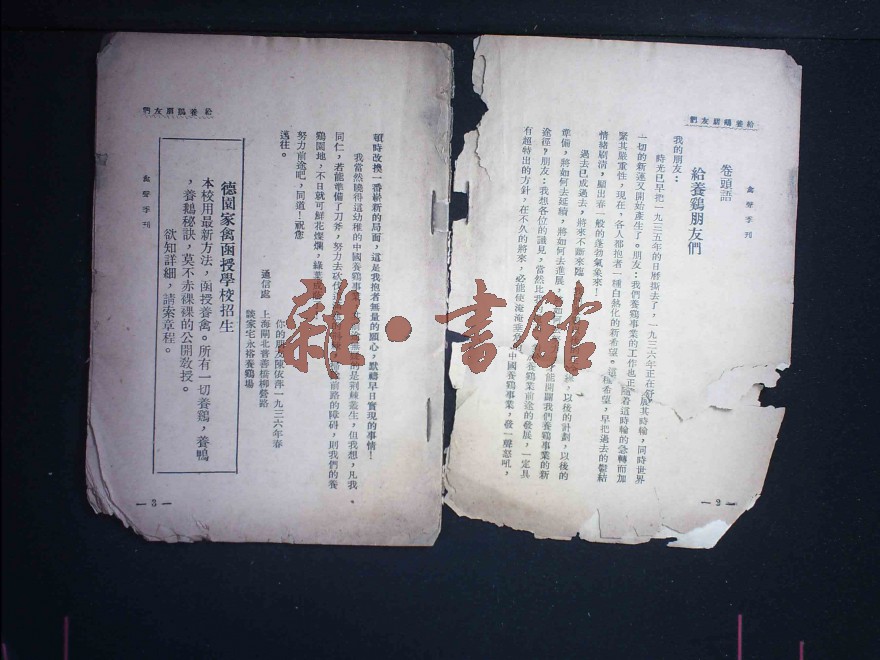 給養鷄朋友們
禽聲季刊
卷頭語
給養鷄朋友們
我的朋友：
時光已早把一九三五年的日曆撕去了，一九三六年正在舒展其時輪，同時世界
一切的新運又開始產生了。朋友：我們養鷄事業的工作也正隨着這時輪的急轉而加
緊其嚴重性，現在，各人都抱着一種白熱化的新希望。這種希望，早把過去的鬱結
情緒廓清，顯出春一般的蓬勃氣象來！
過去已成過去，將來不斷來臨，以後的計劃，以後的
準備，將如何去延續，將如何去進展，才能開闢我們養鷄事業的新
途徑，朋友：我想各位的識見，當然比我養鷄業前途的發展，一定具
有超特出的方針，在不久的將來，必能使淹淹垂中國養鷄事業，發一聲怒吼，
—2—
給養鷄朋友們
禽聲季刊
頓時改換一番嶄新的局面，這是我抱着無量的願心，默禱早日實現的事情！
我當然曉得這幼稚的中國養鷄事業，的是荆棘叢生，但我想，凡我
同仁，若能準備了刀斧，努力去砍伐前路的障碍，則我們的養
鷄園地，不日就可鮮花燦爛，綠葉成
努力前途吧，同道！祝您
邁往。
你的朋友陳依萍一九三六年春
通信處 上海閘北普善橫柳營路
談家宅永裕養鷄場
德園家禽函授學校招生
本校用最新方法，函授養禽。所有一切養鷄，養鴨
，養鵝秘訣，莫不赤裸裸的公開敎授。
欲知詳細，請索章程。
—3—
雜·書館